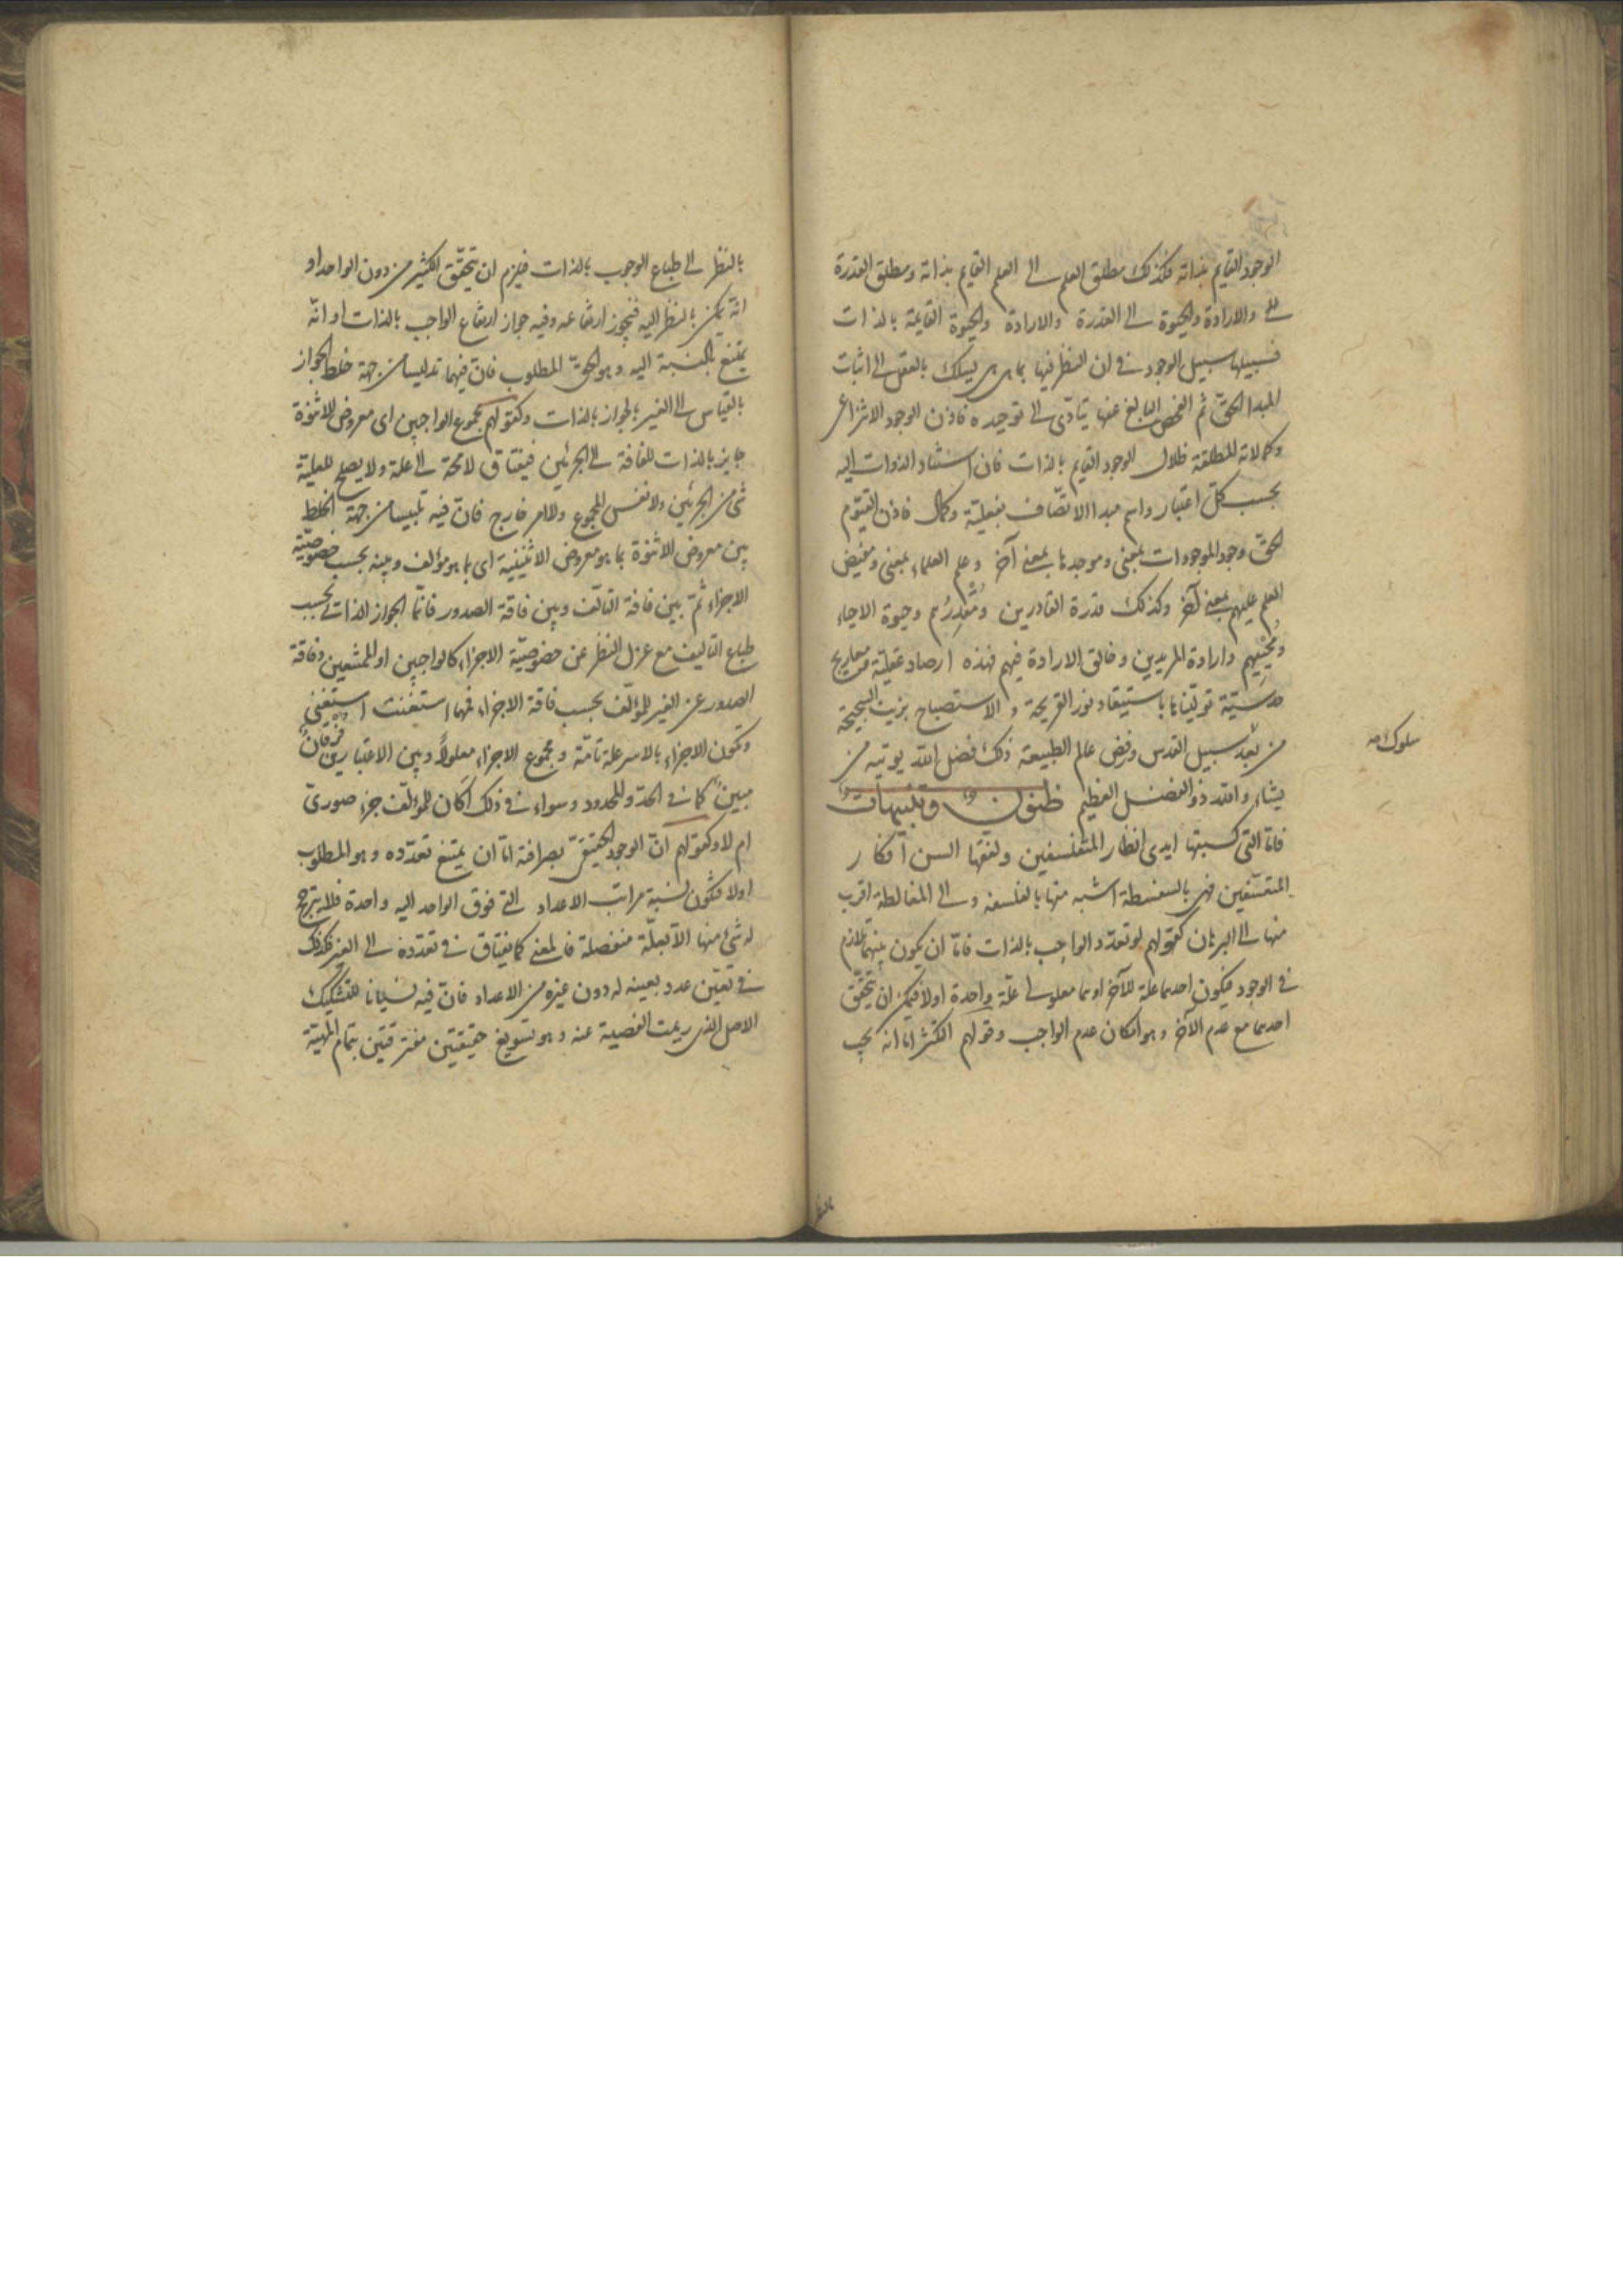 الوجود القايم بذاته فكذلك مطلق العلم الى العلم القايم بذاته ومطلق القدرة
والارادة والحيوة الى القدرة والارادة والحيوة القايمة بالذات
فسبيلها سبيل الوجود فى ان النظر فيها بما هى هى يسلك بالعقل الى اثبات
المبدا الحقّ ثم الفحص البالغ عنها يتأدّى الى توحيده فاذن الوجود الانتزاعى
وكمالاته المطلقة ظلال الوجود القايم بالذات فان استناد الذوات اليه
بحسب كلّ اعتبار واسم مبدا الاتّصاف بفعليّة وكمال فاذن القيّوم
الحقّ وجود الموجودات بمعنى وموجدها بمعنى آخر وعلم العلماء بمعنى ومفيض
العلم عليهم بمعنى آخر وكذلك قدرة القادرين ومُقْدِرُهم وحيوة الاحياء
ومُحْيِيهم وارادة المريدين وخالق الارادة فيهم فهذه ارصاد عقليّة ومعاريج
حدسيّة تولّيناها باستيقاد نور القريحة والاستصباح بزيت السجيحة
من بعد سبيل القدس ورفض عالم الطبيعة ذلك فضل الله يوتيه من
سلوك صه
يشاء والله ذو الفضل العظيم ظنون وتنبيهات
فامّا التى كسبتها ايدى انظار المتفلسفين ولفقها السن افكار
المتقسّفين فهى بالسفسطة اشبه منها بالفلسفه والى المغالطة اقرب
منها الى البرهان كقولهم لو تعدّد الواجب بالذات فامّا ان يكون بينهما تلازم
فى الوجود فيكون احدهما علة للآخر او هما معلولى علّة واحدة اولا فيمكن ان يتحقّق
احدهما مع عدم الآخر وهو امكان عدم الواجب وقولهم التكثّر امّا انه يجب
بالنظر
بالنظر الى طباع الوجوب بالذات فيلزم ان يتحقّق الكثير من دون الواحد او
انّه يمكن بالنظر اليه فيجوز ارتفاعه وفيه جواز ارتفاع الواجب بالذات او انّه
يمتنع بالنسبة اليه وهو الحقّ المطلوب فانّ فيهما تدليسا من جهة خلط الجواز
بالقياس الى الغير بالجواز بالذات وكقولهم مجموع الواجبين اى معروض الاثنوة
جايز بالذات للفاقة الى الجزئين فيفتاق لامحة الى علة ولا يصلح للعليّة
شئ من الجزئين ولا نفس المجموع ولا امر خارج فانّ فيه تلبيسا من جهة الخلط
بين معروض الاثنوة بما هو معروض الاثنينية اى بما هو مؤلف وبينه بحسب خصوصيّة
الاجزاء ثمّ بين فاقة التألّف وبين فاقة الصدور فانّما الجواز الذاتى بحسب
طباع التاليف مع عزل النظر عن خصوصيّة الاجزاء كالواجبين او الممتنعين وفاقة
الصدور عن الغير للمؤلّف بحسب فاقة الاجزاء فمهما استغنت استغنى
وتكون الاجزاء بالاسر علة تامّة ومجموع الاجزاء معلولاً وبين الاعتبارين فرقانٌ
مبينٌ كما فى الحدّ والمحدود وسواء فى ذلك اكان للمؤلّف جزء صورىّ
ام لا وكقولهم انّ الوجود الحقيقىّ بصرافته امّا ان يمتنع تعدّده وهو المطلوب
اولا فتكون نسبة مراتب الاعداد التى فوق الواحد اليه واحدة فلا يترجّح
له شئ منها الّا بعلّة منفصلة فالمعنى كما يفتاق فى تعدّده الى الغير فكذلك
فى تعيّن عدد بعينه له دون غيره من الاعداد فانّ فيه نسيانا للتشكيك
الاصل الذى ريمت الفصية عنه وهو تسويغ حقيقتين مفترقتين بتمام المهيّة